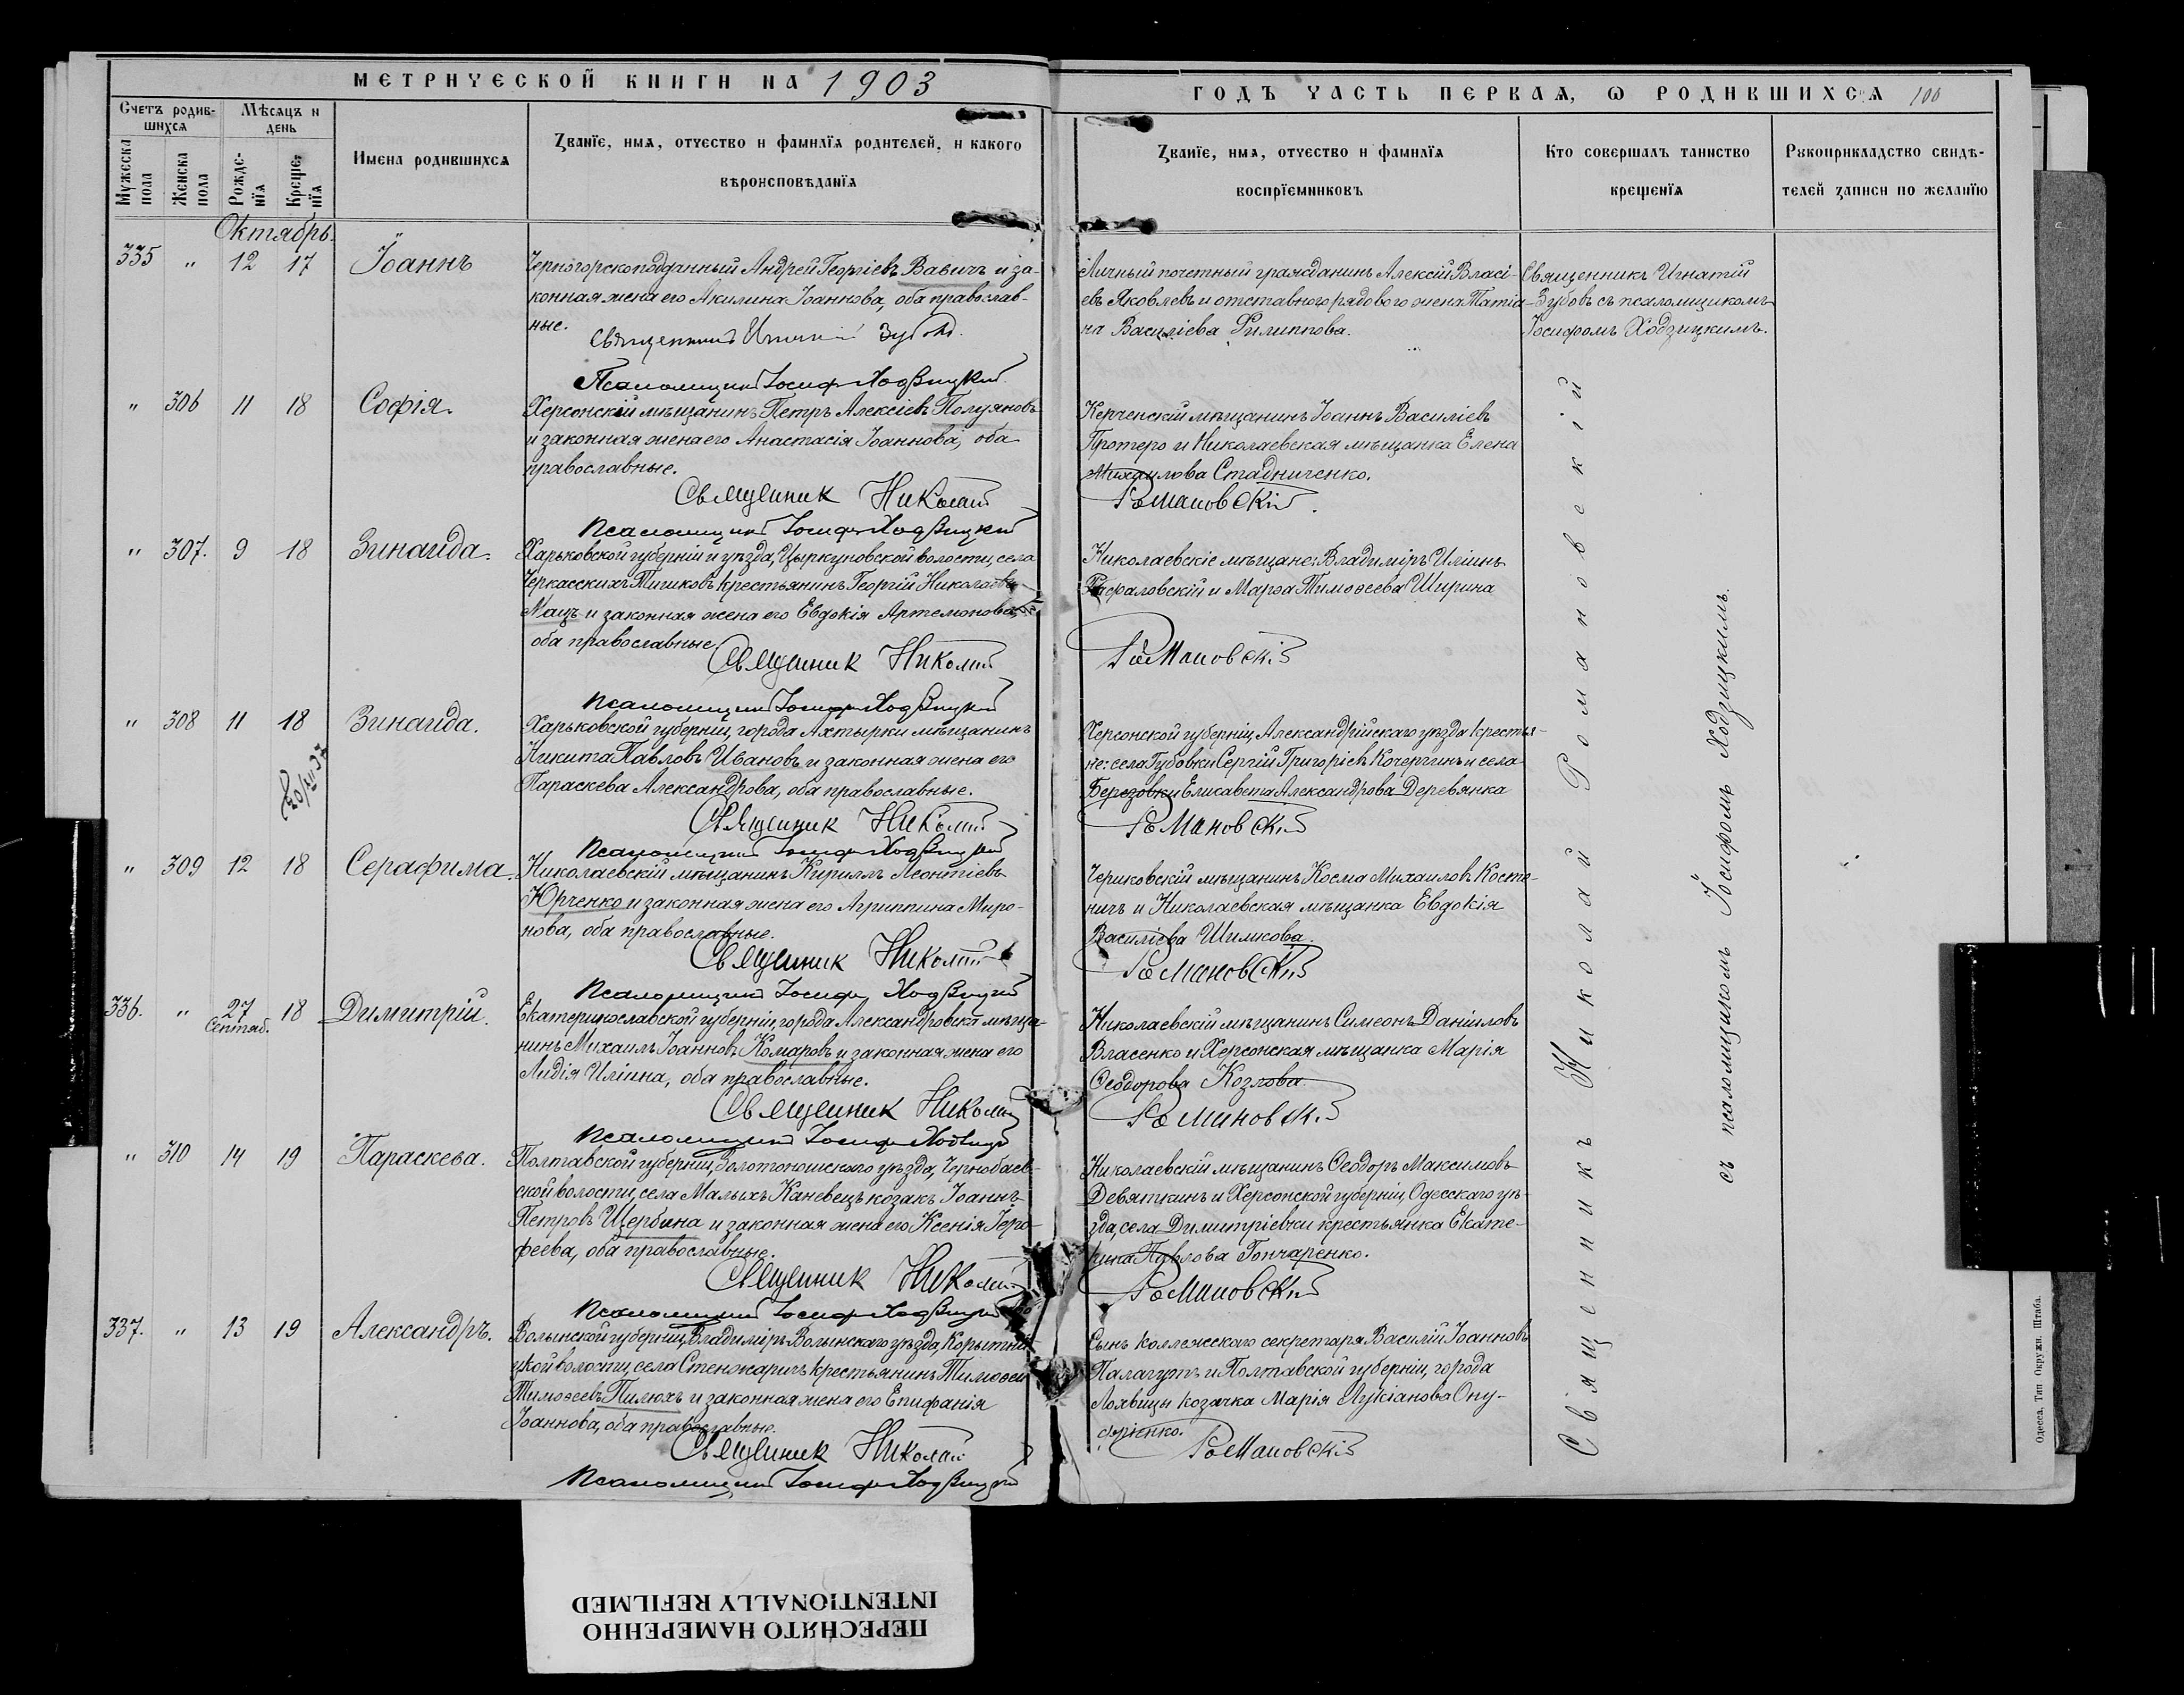 МЕТРИЧЕСКОЙ КНИГИ НА 1903
ГОДЪ ЧАСТЬ ПЕРВАЯ, Ѡ РОДИВШИХСЯ 100
Счетъ родив-
шихся
Мѣсяцъ и
день
Мужеска
пола
Женска
пола
Рожде-
нїя
Креще-
нїя
Имена родившихся
Званїе, имя, отчество и фамилїя родителей, и какого
вѣроисповѣданїя
Званїе, имя, отчество и фамилїя
воспрїемниковъ
Кто совершалъ таинство
крещенїя
Рукоприкладство свидѣ-
телей записи по желанїю
Октябрь.
335 " 12 17 Іоаннъ
Черногорскоподданный Андрей Георгіевъ Вавичъ и за-
конная жена его Акилина Іоаннова, оба православ-
ные.
Священникъ Игнатій Зубовъ.
Псаломщикъ Іосифъ Ходзицкій
Личный почетный гражданинъ Алексій Власі-
евъ Яковлевъ и отставного рядового жена Татіа-
на Василіева Филиппова.
Священникъ Игнатій
Зубовъ съ псаломщикомъ
Іосифомъ Ходзицкимъ.
" 306 11 18 Софія.
Херсонскій мѣщанинъ Петръ Алексіевъ Полуяновъ
и законная жена его Анастасія Іоаннова, оба
православные.
Священикъ Николай
Псаломщикъ Іосифъ Ходзицкій
Керченскій мѣщанинъ Іоаннъ Василіевъ
Протеро и Николаевская мѣщанка Елена
Михаилова Стадниченко.
Романовскій.
" 307. 9 18 Зинаида.
Харьковской губерніи и уѣзда, Цыркуновской волости, села
Черкасскихъ Тишковъ крестьянинъ Георгій Николаевъ
Мацъ и законная жена его Евдокія Артемонова,
оба православные
Священикъ Николай
Псаломщикъ Іосифъ Ходзицкій
Николаевскіе мѣщане: Владиміръ Иліинъ
и Марѳа Тимоѳеева Ширина
Романовскій
" 308 11 18 Зинаида.
Харьковской губерніи, города Ахтырки мѣщанинъ
Никита Павловъ Ивановъ и законная жена его
Параскева Александрова, оба православные.
Священикъ Николай
Псаломщикъ Іосифъ Ходзицкій
Херсонской губерніи, Александрійскаго уѣзда крестья-
не: села Губовки Сергій Григоріевъ Кочергинъ и села
Березовки Елисавета Александрова Деревянка
Романовскій
" 309 12 18 Серафима.
Николаевскій мѣщанинъ Кириллъ Леонтіевъ
Юрченко и законная жена его Агриппина Миро-
нова, оба православные.
Священикъ Николай
Псаломщикъ Іосифъ Ходзицкій
Чериковскій мѣщанинъ Косма Михаиловъ Косте-
ничъ и Николаевская мѣщанка Евдокія
Василіева Шимкова.
Романовскій
336. " 27 18 Димитрій.
Сентяб.
Екатеринославской губерніи, города Александровска мѣща-
нинъ Михаилъ Іоанновъ Комаровъ и законная жена его
Лидія Иліина, оба православные.
Священикъ Николай
Псаломщикъ Іосифъ Ходзицкій
Николаевскій мѣщанинъ Симеонъ Даніиловъ
Власенко и Херсонская мѣщанка Марія
Ѳеодорова Козлова.
Романовскій
" 310 14 19 Параскева.
Полтавской губерніи, Золотоношскаго уѣзда, Чернобаев-
ской волости, села Малыхъ Каневецъ козакъ Іоаннъ
Петровъ Щербина и законная жена его Ксенія Іеро-
феева, оба православные.
Священикъ Николай
Псаломщикъ Іосифъ Ходзицкій
Николаевскій мѣщанинъ Ѳеодоръ Максимовъ
Девяткинъ и Херсонской губерніи, Одесскаго уѣ-
зда, села Димитріевки крестьянка Екате-
рина Павлова Гончаренко.
Романовскій
337. " 13 19 Александръ.
Волынской губерніи, Владиміръ Волынскаго уѣзда, Корытни-
цкой волости, села Стенжаричъ крестьянинъ Тимоѳей
Тимоѳеевъ Пилюхъ и законная жена его Епифанія
Іоаннова, оба православные.
Священикъ Николай
Псаломщикъ Іосифъ Ходзицкій
Сынъ коллежскаго секретаря Василій Іоанновъ
Палагутъ и Полтавской губерніи, города
Лохвицы козачка Марія Лукіанова Ону-
фріенко.
Романовскій
Священникъ Николай Романовскій
съ псаломщикомъ Іосифомъ Ходзицкимъ.
Одесса, Тип Окружн. Штаба.
ПЕРЕСНЯТО НАМЕРЕННО
INTENTIONALLY REFILMED